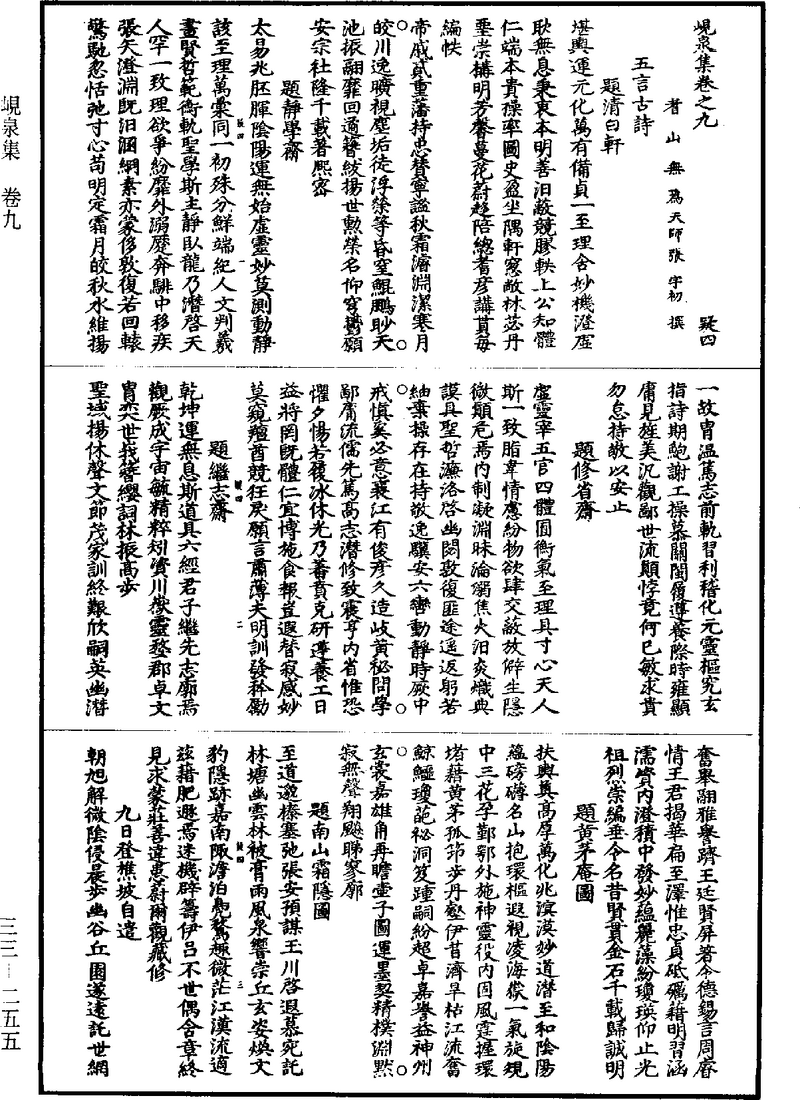 峴泉集卷之九
疑四
耆山無為天師張宇初撰
五言古詩
題清白軒
堪輿運元化萬有備貞一至理含妙機澄虛
耿無息秉衷本明善汨敵競膠軼上公知體
仁端本貴操率圖史盈坐隅軒窻敞林苾丹
堊崇構明芳馨蔓花蔚趨陪總耆彥講貫每
編帙
帝戚貳重藩持忠贊寧謐秋霜濬淵潔寒月
皎川逸曠視塵垢徒浮榮等昏窒鯤鵬眇天
池振翮靡回遹簪紱揚世勲榮名仰穹
願
安宗社隆千載著熙密
題靜學齋
太易兆胚腪陰陽運無始虛靈妙莫測動靜
該至理萬彙同一初殊分鮮端紀人文判羲
畫賢哲範銜軌聖學斯主靜臥龍乃潛啓天
人罕一致理欲爭紛靡外溺麾奔騑中移疾
張矢澄淵既汨涸綱素亦蒙侈敦復若回轅
驚馳忽恬弛寸心苟明定霜月皎秋水維揚
一故胄溫篤志前軌習利稽化元靈樞究玄
指詩期鮑謝工操慕關閩履遵養際時雍顯
庸見旌美汎觀鄙世流顛悖竟何已敏求貴
勿怠持敬以安止
題修省齋
虛靈宰五官四體固銜氣至理具寸心天人
斯一致脂韋情應紛物欲肆交蔽放僻生隱
微顛危焉內制凝淵昧淪溺焦火汨炎熾典
謨具聖哲濂洛啓幽閟敦復匪途遥返躬若
紬棄操存在持敬逸驥安六轡動靜時厥中
戒慎奚必意襄江有俊彥久造岐黃秘問學
鄙庸流儒先篤高志潛修致震亨內省惟恐
懼夕惕若履冰休光乃蕃賁克研遵養工日
益將罔既體仁宜博施食報豈遐替寂感妙
莫窺羶酋競狂戾願言肅薄夫明訓發矜勵
題繼志齋
乾坤運無息斯道具六經君子繼先志廓焉
觀厥成宇宙毓精粹矧濱川嶽靈婺郡卓文
胄奕世我簪纓詞林振高步
聖域揚休聲文節茂家訓終艱欣嗣英幽潛
奮舉翮雅譽躋王廷賢屏著令德錫言周睿
情王君揭華扁至澤惟忠貞砥礪藉明習涵
濡資內澄積中發妙蘊麗藻紛瓊瑛仰止光
祖烈崇編垂令名昔賢貫金石千載歸誠明
題黃茅庵圖
扶輿奠高厚萬化兆溟漠妙道潛至和陰陽
蘊磅礴名山抱環樞遐視凌海嶽一氣旋規
中三花孚鄞鄂外施神靈役內固風霆握環
堵藉黃茅孤笻步丹壑伊昔濟旱枯江流奮
鯨鱷瓊葩祕洞笈踵嗣紛超卓嘉譽益神州
玄裳嘉雄角再瞻壺子圖運墨契精樸淵默
寂無聲翔颷睇寥廓
題南山霜隱圖
至道邈榛塞弛張安預謀王川啓遐慕宛託
林塘幽雲林被膏雨風泉響崇丘玄姿煥文
豹隱跡嘉南陬澹泊鳧鶩趣微茫江漢流適
茲藉肥遯焉逑機辟籌伊呂不世偶含章終
見求蒙莊善違患蔚爾觀藏修
九日登樵坡自遣
朝旭解微陰侵晨步幽谷丘園遂遠託世網
峴泉集　卷九
三三―二五五